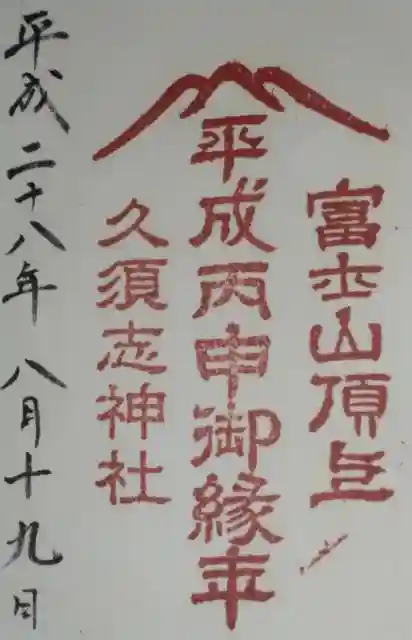 富士山頂上
平成丙申御縁年
久須志神社
平成二十八年 八月十九日